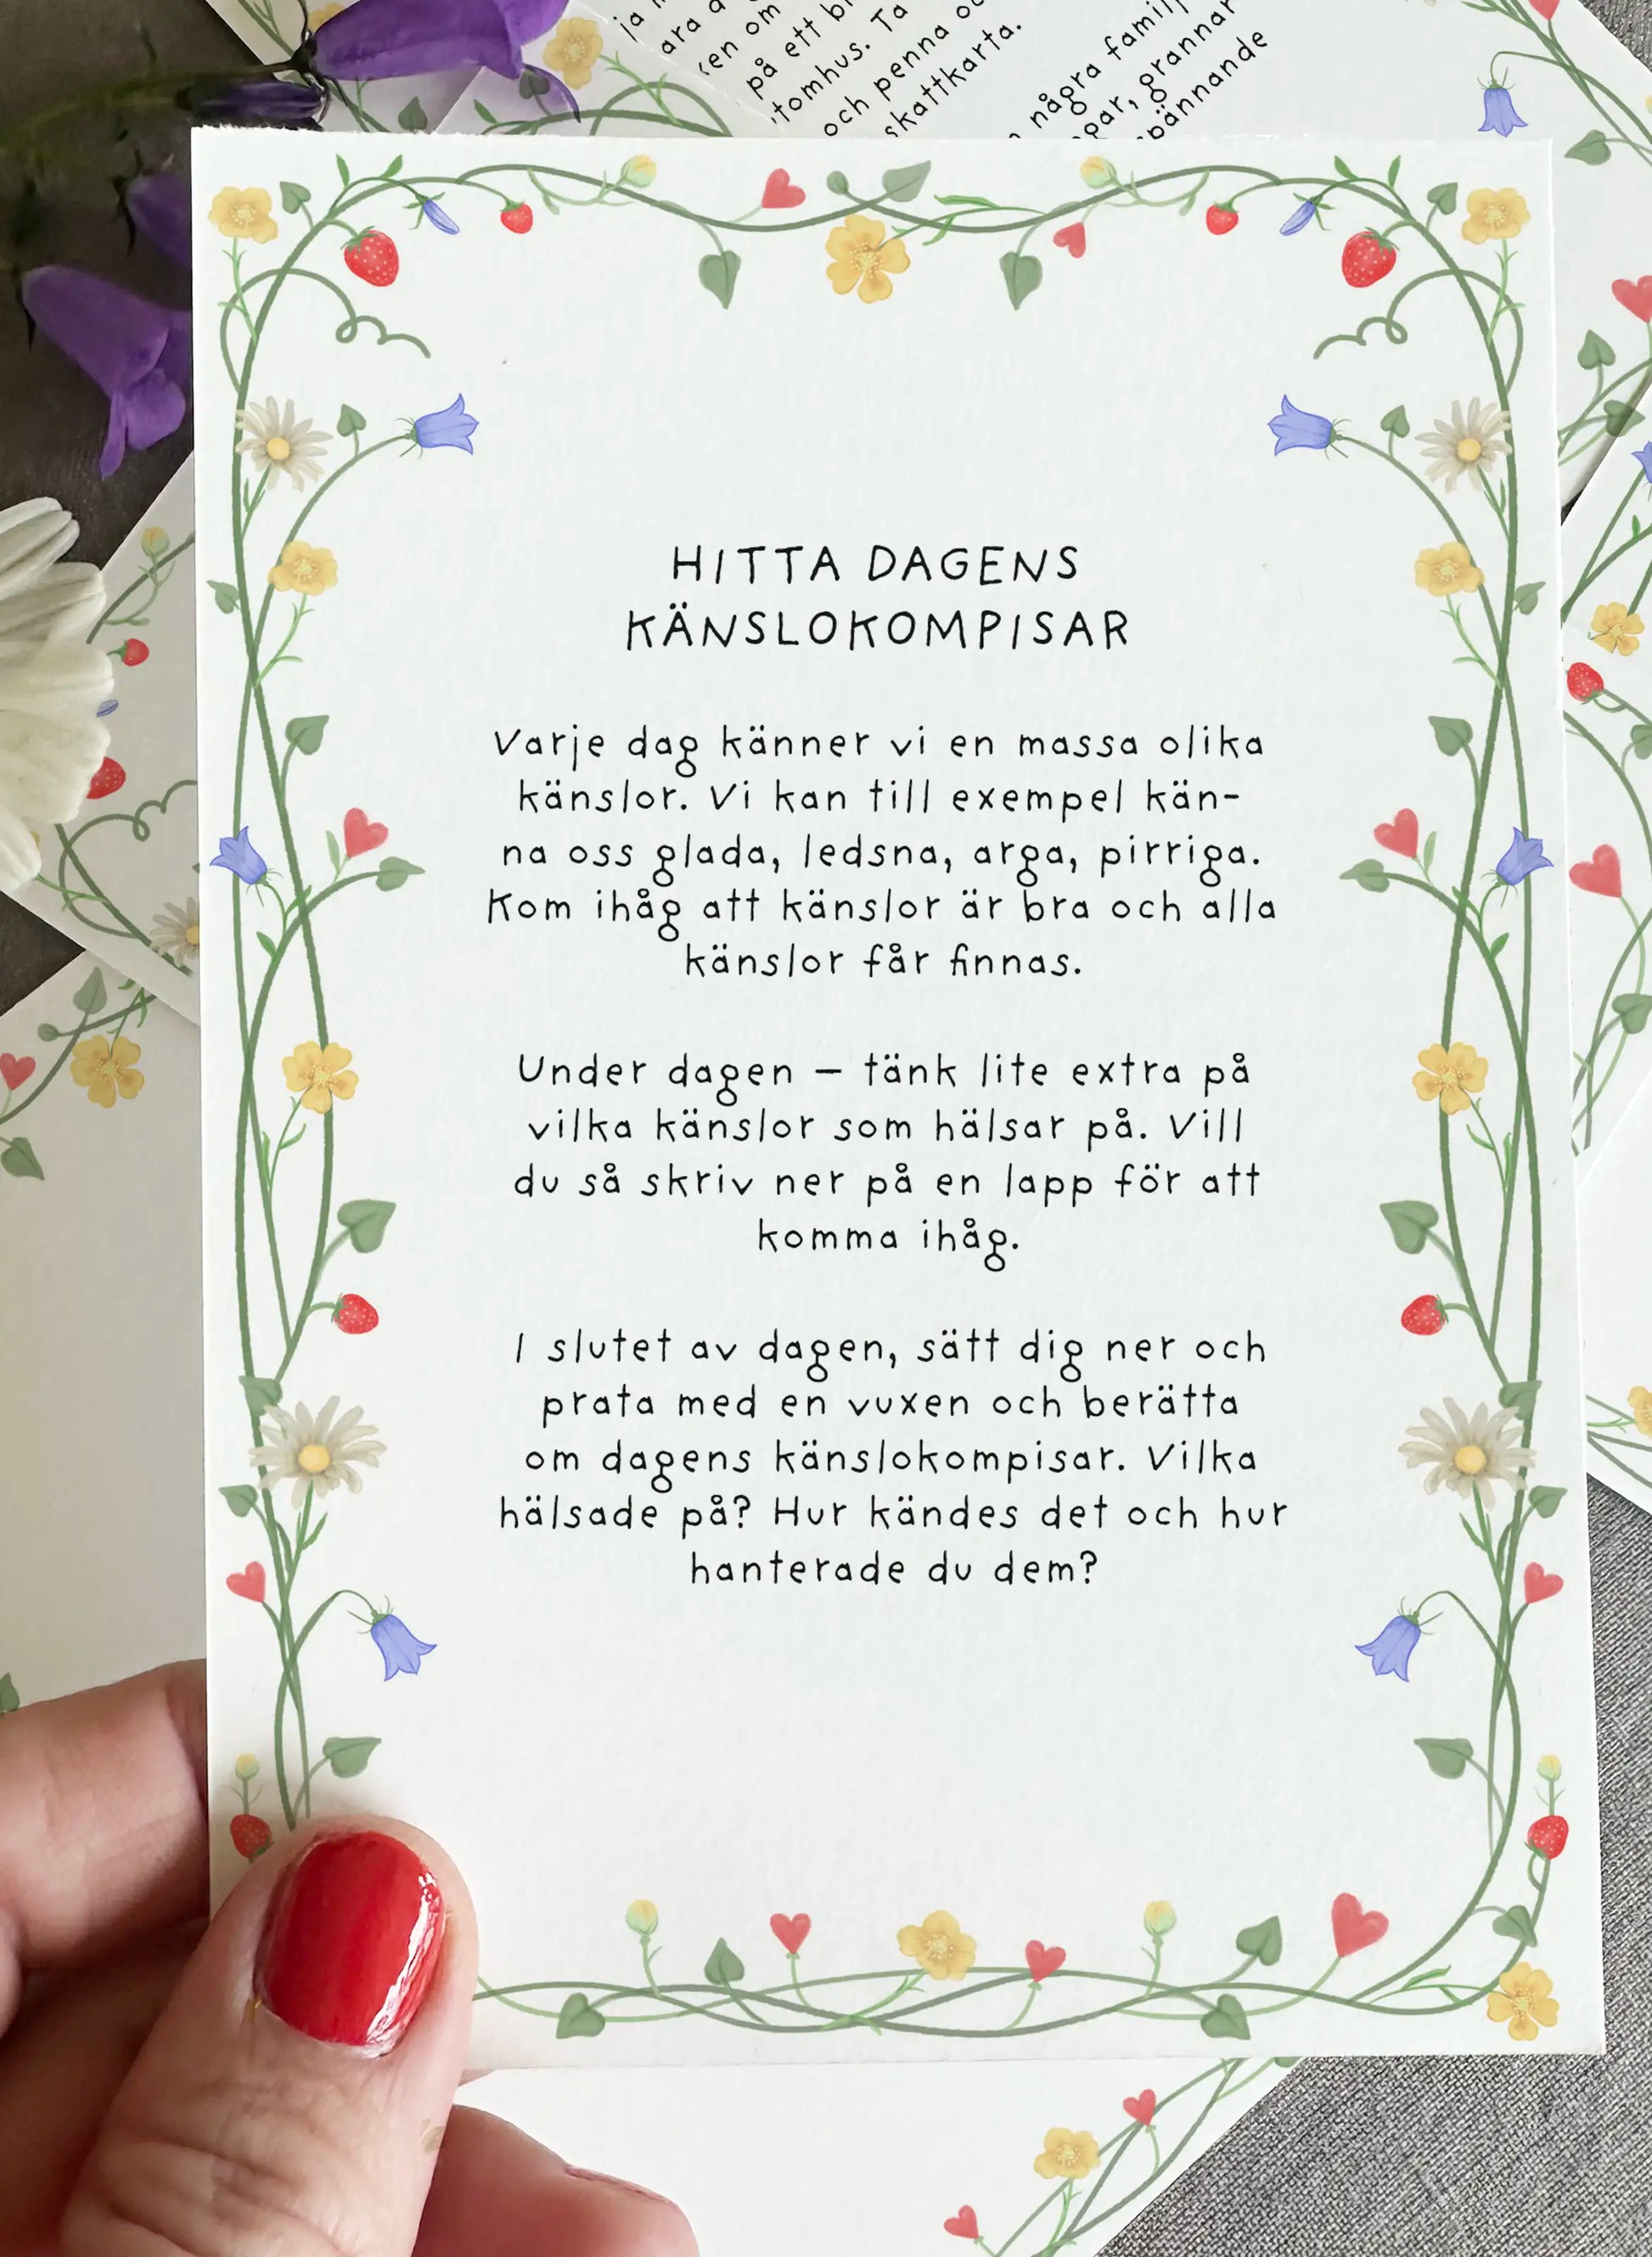 på ett
och penna
skattkarta.
några
grannar
HITTA DAGENS
KÄNSLOKOMPISAR
Varje dag känner vi en massa olika
känslor. Vi kan till exempel kän-
na oss glada, ledsna, arga, pirriga.
Kom ihåg att känslor är bra och alla
känslor får finnas.
Under dagen – tänk lite extra på
vilka känslor som hälsar på. Vill
du så skriv ner på en lapp för att
komma ihåg.
I slutet av dagen, sätt dig ner och
prata med en vuxen och berätta
om dagens känslokompisar. Vilka
hälsade på? Hur kändes det och hur
hanterade du dem?